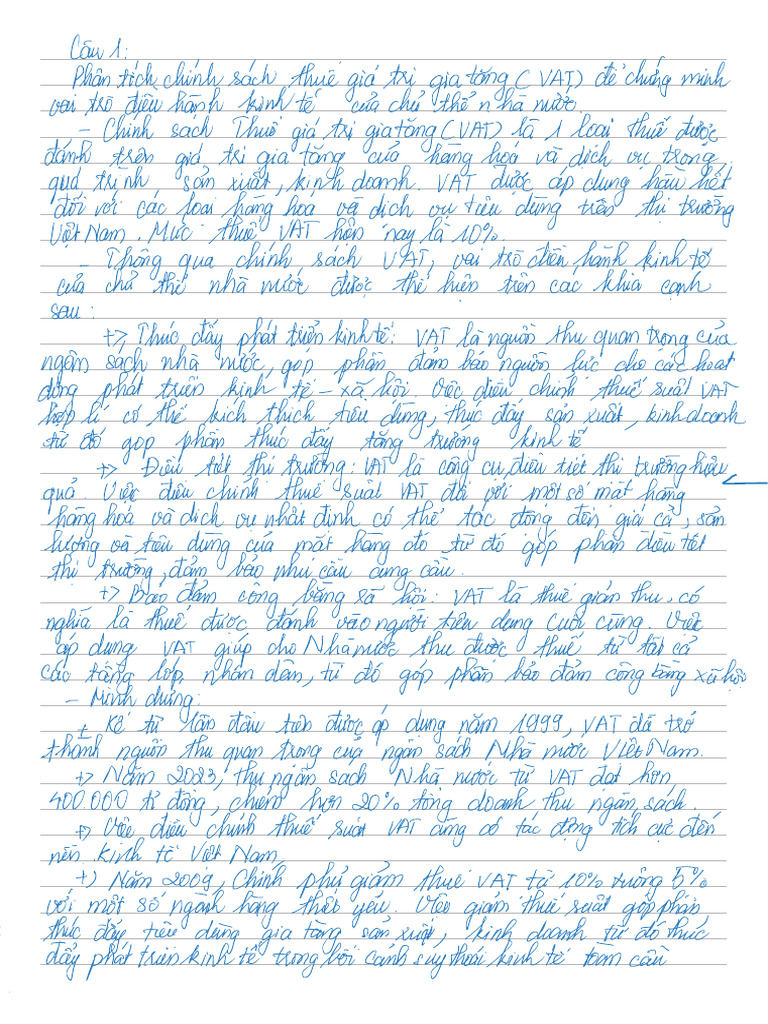 Câu 1:
Phân tích chính sách thuế giá trị gia tăng (VAT) để chứng minh
vai trò điều hành kinh tế của chủ thể nhà nước
- Chính sách Thuế giá trị gia tăng (VAT) là 1 loại thuế được
đánh trên giá trị gia tăng của hàng hoá và dịch vụ trong
quá trình sản xuất, kinh doanh. VAT được áp dụng hầu hết
đối với các loại hàng hoá và dịch vụ tiêu dùng trên thị trường
Việt Nam. Mức thuế VAT hiện nay là 10%.
- Thông qua chính sách VAT, vai trò điều hành kinh tế
của chủ thể nhà nước được thể hiện trên các khía cạnh
sau:
+> Thúc đẩy phát triển kinh tế: VAT là nguồn thu quan trọng của
ngân sách nhà nước, góp phần đảm bảo nguồn lực cho các hoạt
động phát triển kinh tế - xã hội. Việc điều chỉnh thuế suất VAT
hợp lí có thể kích thích tiêu dùng, thúc đẩy sản xuất, kinh doanh
từ đó góp phần thúc đẩy tăng trưởng kinh tế
+> Điều tiết thị trường: VAT là công cụ điều tiết thị trường hiệu
quả. Việc điều chỉnh thuế suất VAT đối với một số mặt hàng
hàng hoá và dịch vụ nhất định có thể tác động đến giá cả, sản
lượng và tiêu dùng của mặt hàng đó từ đó góp phần điều tiết
thị trường, đảm bảo nhu cầu cung cầu.
+> Bảo đảm công bằng xã hội: VAT là thuế gián thu, có
nghĩa là thuế được đánh vào người tiêu dùng cuối cùng. Việc
áp dụng VAT giúp cho Nhà nước thu được thuế từ tất cả
các tầng lớp nhân dân, từ đó góp phần bảo đảm công bằng xã hội
- Minh chứng:
+ Kể từ lần đầu tiên được áp dụng năm 1999, VAT đã trở
thành nguồn thu quan trọng của ngân sách Nhà nước Việt Nam.
+> Năm 2023, thu ngân sách Nhà nước từ VAT đạt hơn
400.000 tỉ đồng, chiếm hơn 20% tổng doanh thu ngân sách.
+> Việc điều chỉnh thuế suất VAT cũng có tác động tích cực đến
nền kinh tế Việt Nam
+) Năm 2009, Chính phủ giảm thuế VAT từ 10% xuống 5%
với một số ngành hàng thiết yếu. Việc giảm thuế suất góp phần
thúc đẩy tiêu dùng gia tăng sản xuất, kinh doanh từ đó thúc
đẩy phát triển kinh tế trong bối cảnh suy thoái kinh tế toàn cầu